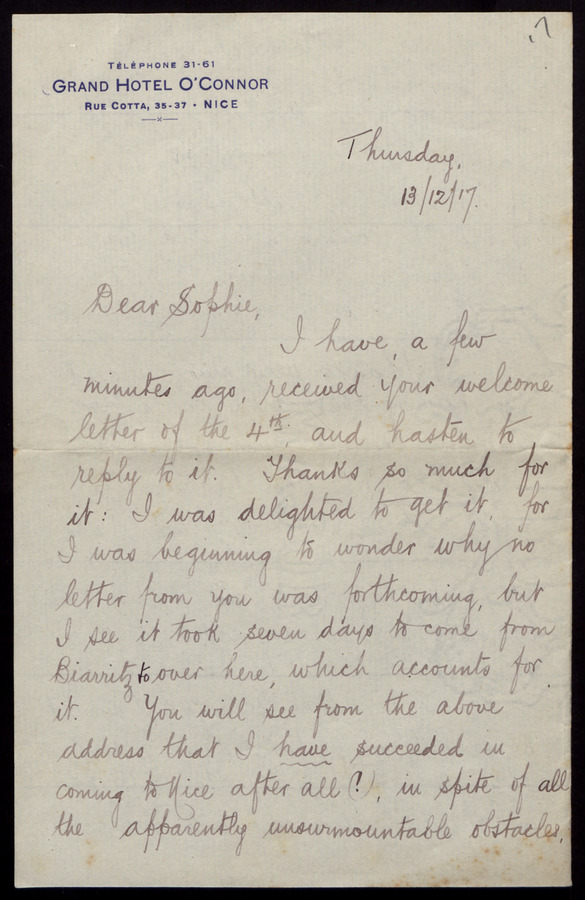 TÉLÉPHONE 31-61
GRAND HOTEL O'CONNOR
RUE COTTA, 35-37 • NICE
Thursday,
13/12/17.
Dear Sophie,
I have, a few
minutes ago, received your welcome
letter of the 4th, and hasten to
reply to it. Thanks so much for
it: I was delighted to get it, for
I was beginning to wonder why no
letter from you was forthcoming, but
I see it took seven days to come from
Biarritz to over here, which accounts for
it. You will see from the above
address that I have succeeded in
coming to Nice after all (!), in spite of all
the apparently unsurmountable obstacles.